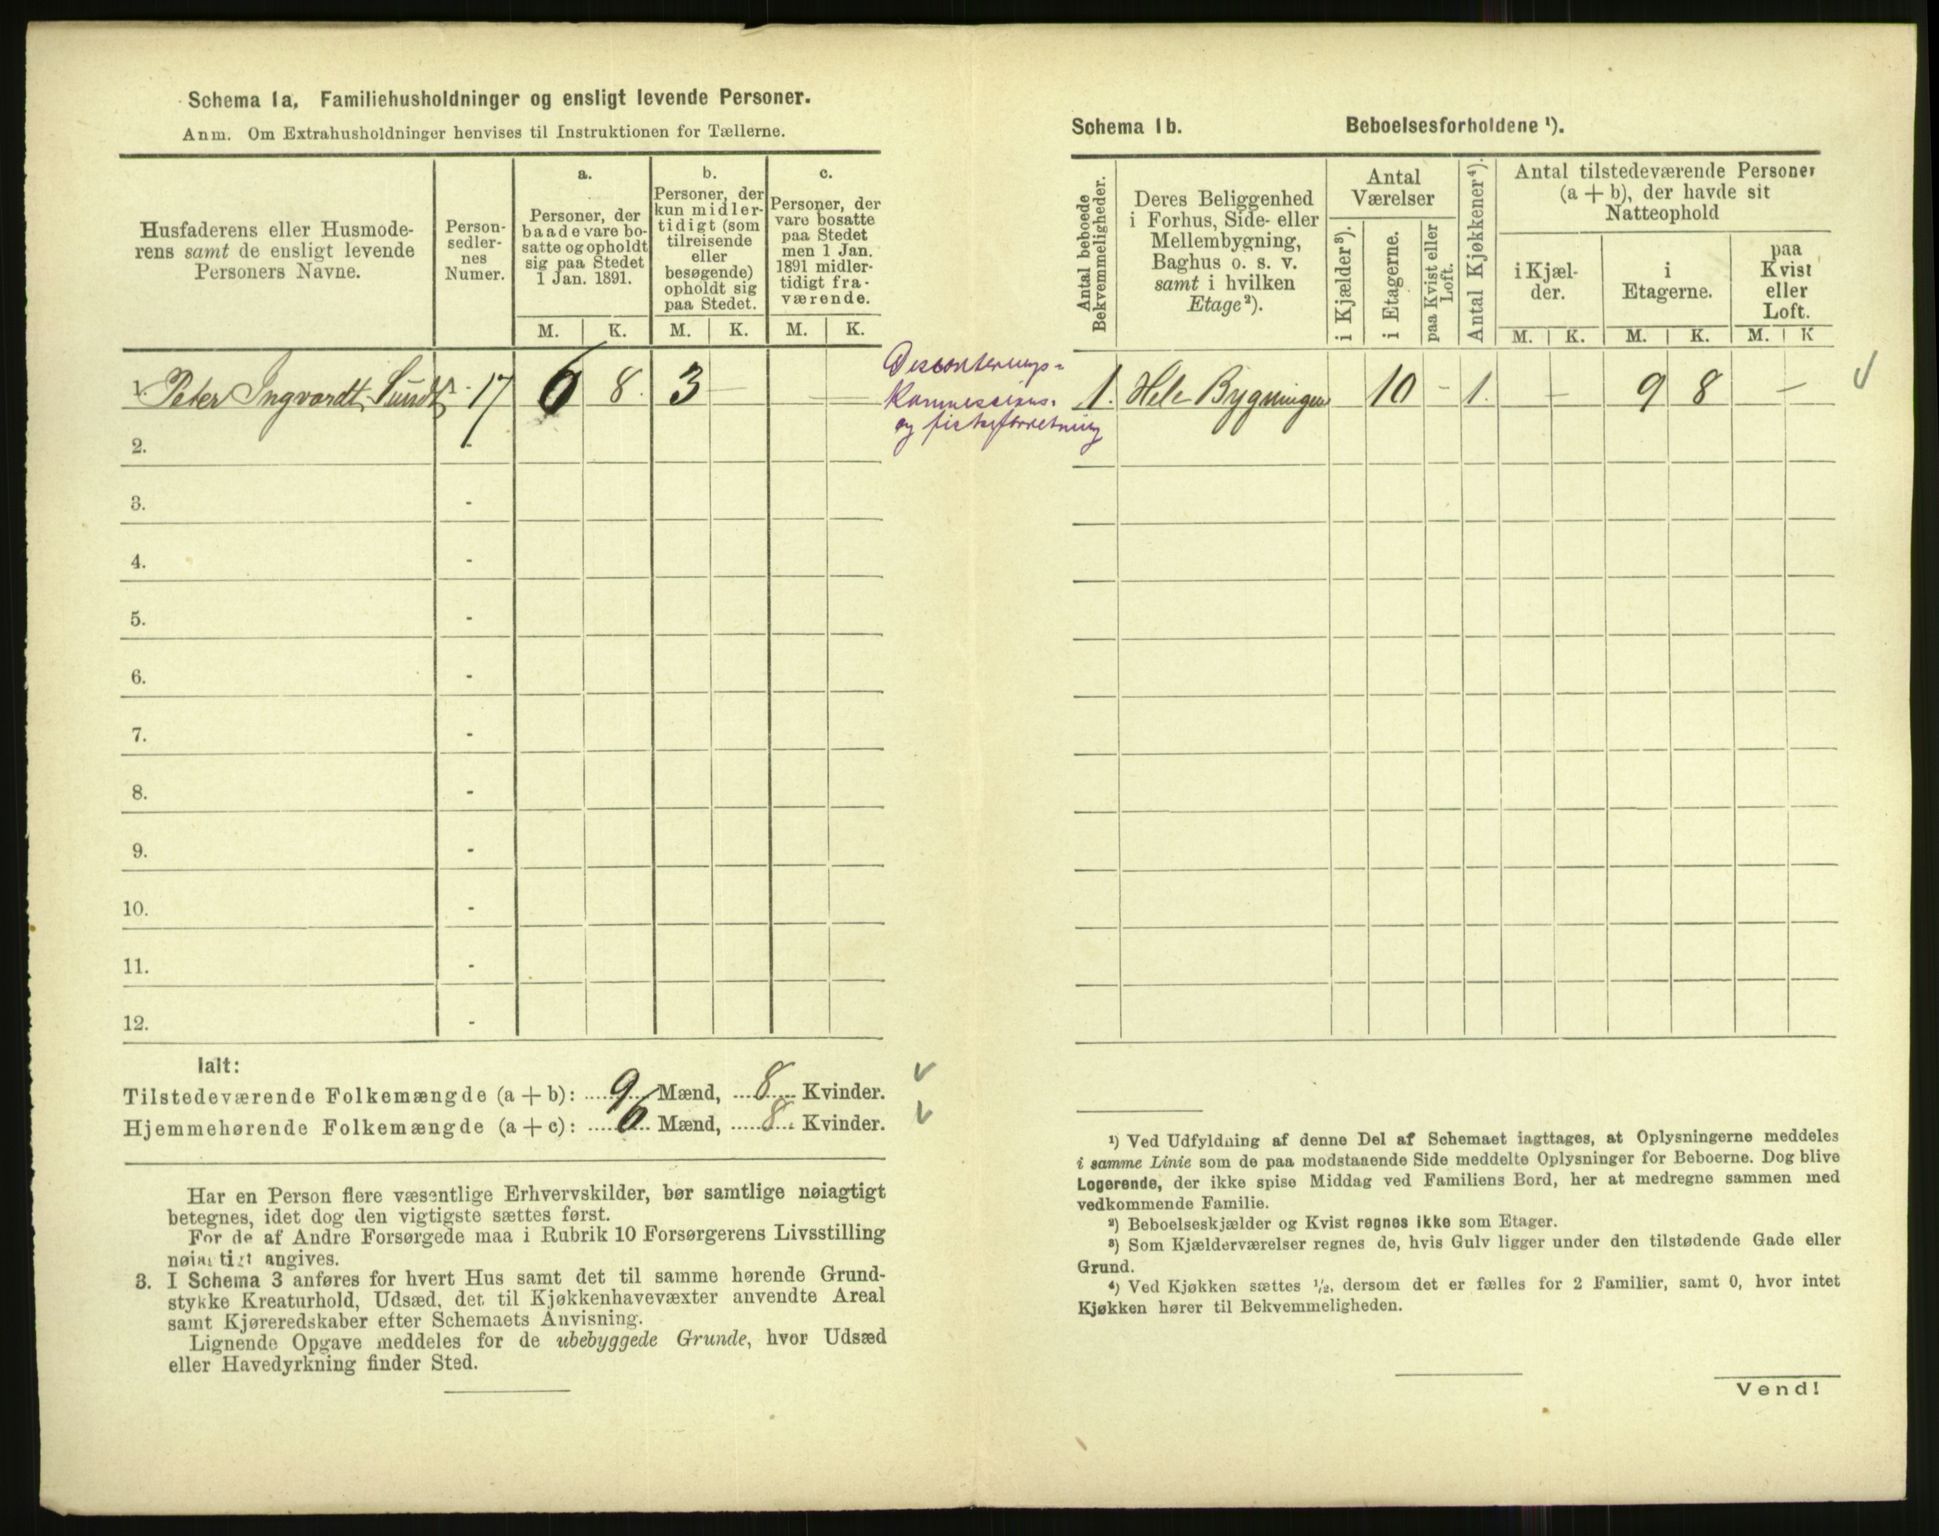 Schema 1a. Familiehusholdninger og ensligt levende Personer.
Anm. Om Extrahusholdninger henvises til Instruktionen for Tællerne.
Husfaderens eller Husmode-
rens samt de ensligt levende
Personers Navne.
Person-
sedler-
nes
Numer.
a.
Personer, der
baade vare bo-
satte og opholdt
sig paa Stedet
1 Jan. 1891.
b.
Personer, der
kun midler-
tidigt (som
tilreisende
eller
besøgende)
opholdt sig
paa Stedet.
c.
Personer, der
vare bosatte
paa Stedet
men 1 Jan.
1891 midler-
tidigt fra-
værende.
M. K. M. K. M. K.
1. Peter Ingvardt Sundt - 17 6 8. 3 —
2. -
3. -
4. -
5. -
6. -
7. -
8. -
9. -
10. -
11. -
12. -
Ialt:
Tilstedeværende Folkemængde (a + b): 9 Mænd, 8 Kvinder.
Hjemmehørende Folkemængde (a + c): 6 Mænd, 8 Kvinder.
Har en Person flere væsentlige Erhvervskilder, bør samtlige nøiagtigt
betegnes, idet dog den vigtigste sættes først.
For de af Andre Forsørgede maa i Rubrik 10 Forsørgerens Livsstilling
nøiagtigt angives.
3. I Schema 3 anføres for hvert Hus samt det til samme hørende Grund-
stykke Kreaturhold, Udsæd, det til Kjøkkenhavevæxter anvendte Areal
samt Kjøreredskaber efter Schemaets Anvisning.
Lignende Opgave meddeles for de ubebyggede Grunde, hvor Udsæd
eller Havedyrkning finder Sted.
Disconterings-
Kommissions-
og fiskeforretning
Schema 1b. Beboelsesforholdene ¹).
Antal beboede
Bekvemmeligheder.
Deres Beliggenhed
i Forhus, Side- eller
Mellembygning,
Baghus o. s. v.
samt i hvilken
Etage²).
Antal
Værelser
i Kjælder³).
i Etagerne.
paa Kvist eller
Loft.
Antal Kjøkkener⁴).
Antal tilstedeværende Personer
(a + b), der havde sit
Natteophold
i Kjæl-
der.
i
Etagerne.
paa
Kvist
eller
Loft.
M. K. M. K. M. K
1. Hele Bygningen 10 - 1. — 9 8 —
¹) Ved Udfyldning af denne Del af Schemaet iagttages, at Oplysningerne meddeles
i samme Linie som de paa modstaaende Side meddelte Oplysninger for Beboerne. Dog blive
Logerende, der ikke spise Middag ved Familiens Bord, her at medregne sammen med
vedkommende Familie.
²) Beboelseskjælder og Kvist regnes ikke som Etager.
³) Som Kjælderværelser regnes de, hvis Gulv ligger under den tilstødende Gade eller
Grund.
⁴) Ved Kjøkken sættes ½, dersom det er fælles for 2 Familier, samt 0, hvor intet
Kjøkken hører til Bekvemmeligheden.
Vend!